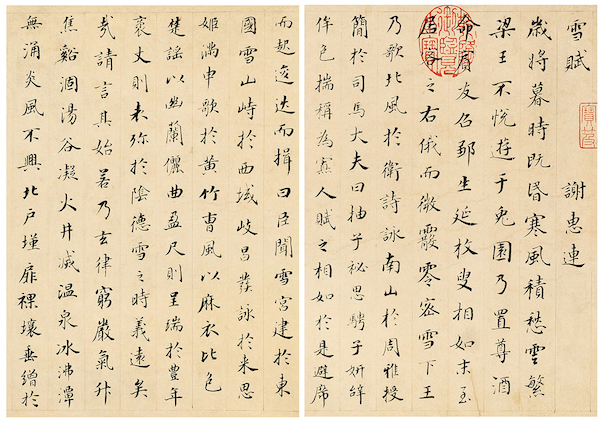 雪賦 謝惠連
歲將暮時既昏寒風積愁雲繁
梁王不悅遊于兔園乃置尊酒
命賓友召鄒生延枚叟相如末至
居客之右俄而微霰零密雪下王
乃歌北風於衛詩詠南山於周雅授
簡於司馬大夫曰抽子祕思騁子妍辭
侔色揣稱為寡人賦之相如於是避席
而起逡巡而揖曰臣聞雪宮建於東
國雪山峙於西域岐昌發詠於來思
姬滿申歌於黃竹曹風以麻衣比色
楚謠以幽蘭儷曲盈尺則呈瑞於豐年
袤丈則表沴於陰德雪之時義遠矣
哉請言其始若乃玄律窮嚴氣升
焦谿涸湯谷凝火井滅温泉冰沸潭
無涌炎風不興北戶墐扉裸壤垂繒於